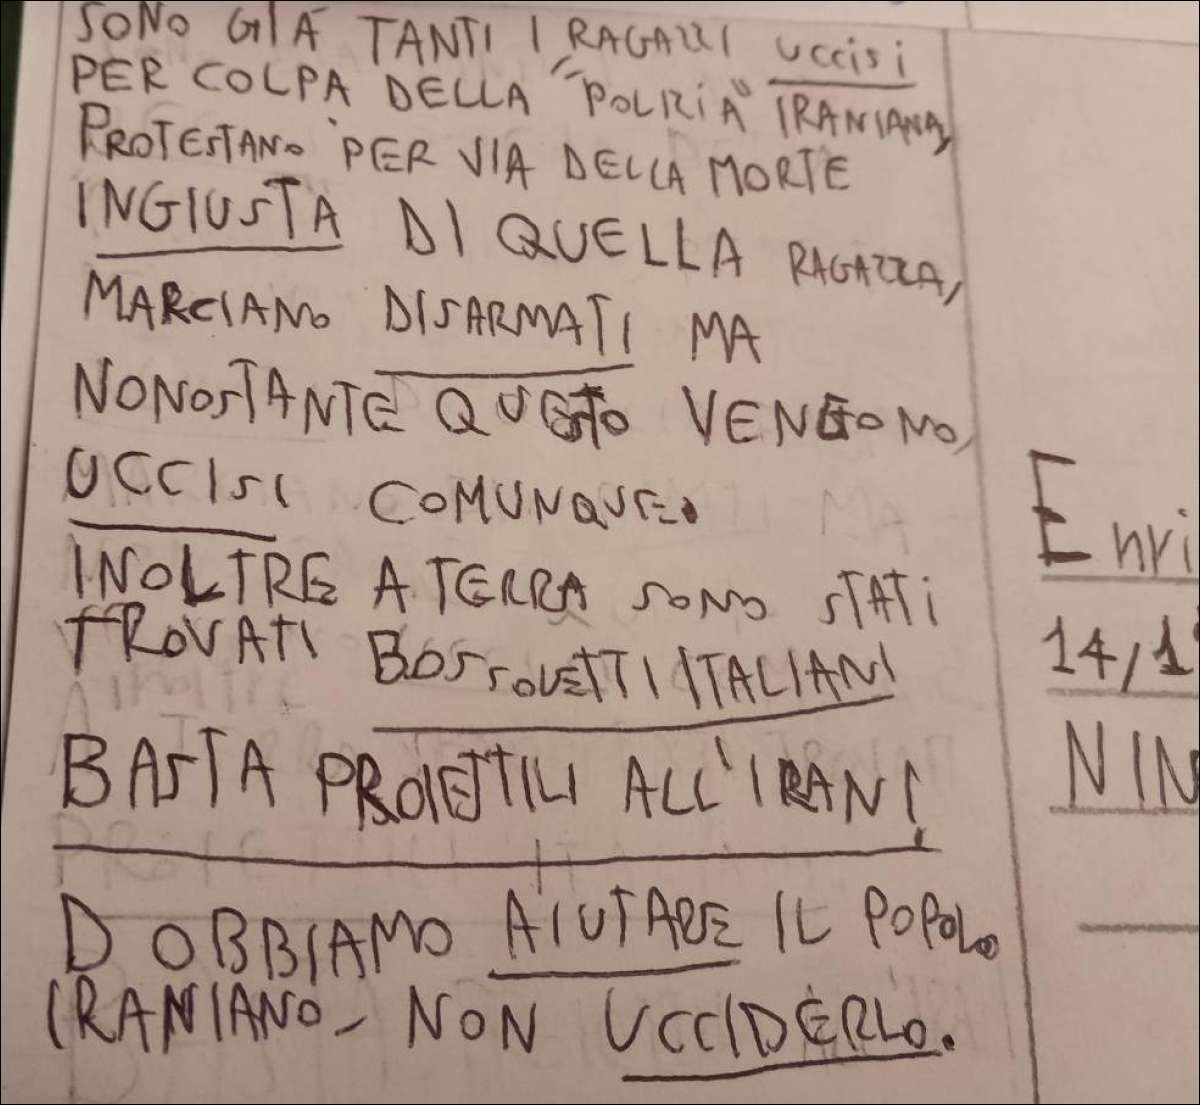 SONO GIÀ TANTI I RAGAZZI UCCISI
PER COLPA DELLA "POLIZIA" IRANIANA,
PROTESTANO PER VIA DELLA MORTE
INGIUSTA DI QUELLA RAGAZZA,
MARCIANO DISARMATI MA
NONOSTANTE QUESTO VENGONO
UCCISI COMUNQUE.
INOLTRE A TERRA SONO STATI
TROVATI BOSSOLETTI ITALIANI
BASTA PROIETTILI ALL'IRAN!
DOBBIAMO AIUTARE IL POPOLO
IRANIANO - NON UCCIDERLO.
Enri
14/1
NIN